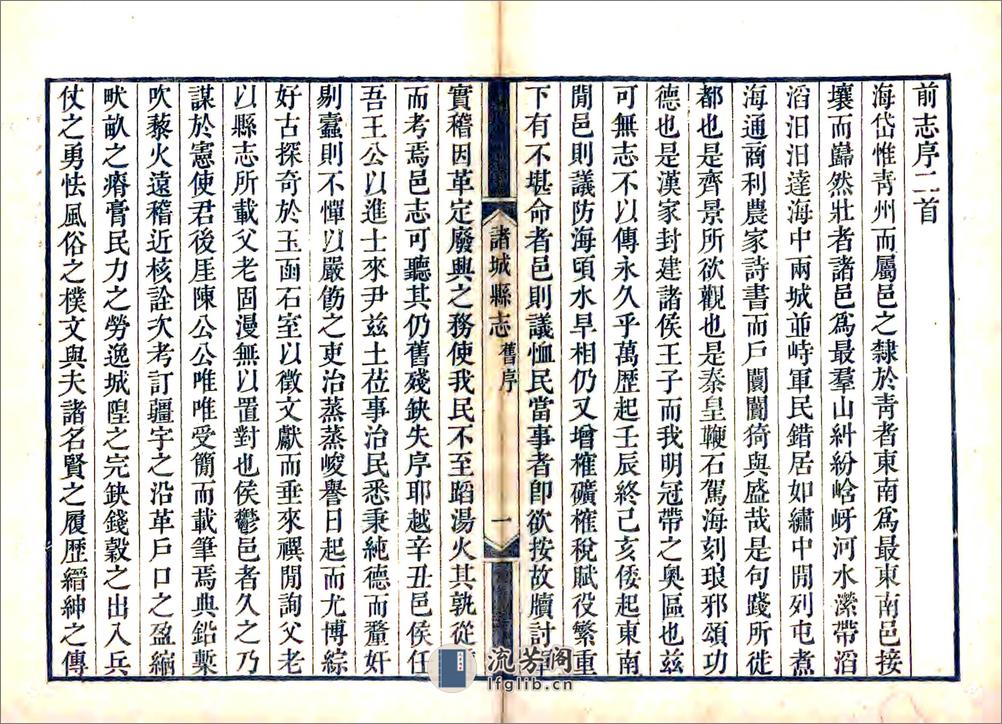 前志序二首
海岱惟青州而屬邑之隸於青者東南爲最東南邑接
壤而巋然壯者諸邑爲最羣山糾紛崯岈河水瀠帶滔
滔汨汨達海中兩城並峙軍民錯居如繡中閒列屯煮
海通商利農家詩書而戶闤闠猗與盛哉是句踐所徙
都也是齊景所欲觀也是秦皇鞭石駕海刻琅邪頌功
德也是漢家封建諸侯王子而我明冠帶之奧區也兹
可無志不以傳永久乎萬歷起壬辰終己亥倭起東南
閒邑則議防海頃水旱相仍又增榷礦榷稅賦役繁重
下有不堪命者邑則議恤民當事者卽欲按故牘討
諸城縣志 舊序 一
實稽因革定廢興之務使我民不至蹈湯火其孰從
而考焉邑志可聽其仍舊殘缺失序耶越辛丑邑侯任
吾王公以進士來尹兹土莅事治民悉秉純德而釐奸
剔蠹則不憚以嚴飭之吏治蒸蒸峻譽日起而尤博綜
好古探奇於玉函石室以徵文獻而垂來禩閒詢父老
以縣志所載父老固漫無以置對也侯鬱邑者久之乃
謀於憲使君後厓陳公公唯唯受簡而載筆焉典鉛槧
吹藜火遠稽近核詮次考訂疆宇之沿革戶口之盈縮
畎畝之瘠膏民力之勞逸城隍之完缺錢穀之出入兵
仗之勇怯風俗之樸文與夫諸名賢之履歷縉紳之傳
流芳阁
lfglib.cn